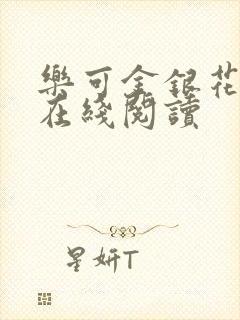 樂可金銀花
在綫閱讀
星妍T